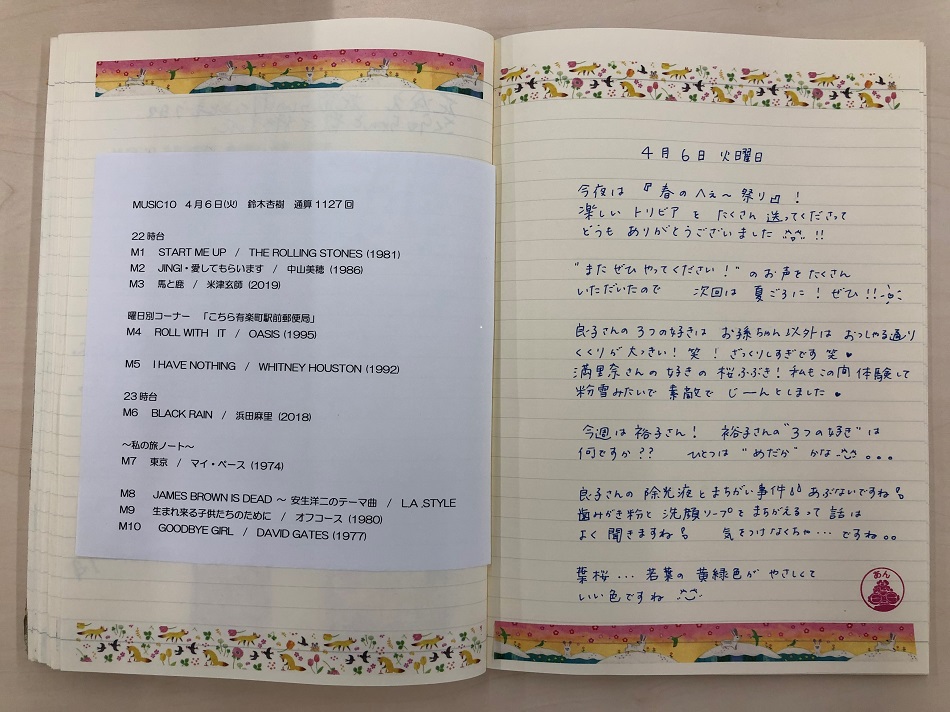 MUSIC10 4月6日(火) 鈴木杏樹 通算1127回
22時台
M1 START ME UP / THE ROLLING STONES (1981)
M2 JINGI・愛してもらいます / 中山美穂 (1986)
M3 馬と鹿 / 米津玄師 (2019)
曜日別コーナー 「こちら有楽町駅前郵便局」
M4 ROLL WITH IT / OASIS (1995)
M5 I HAVE NOTHING / WHITNEY HOUSTON (1992)
23時台
M6 BLACK RAIN / 浜田麻里 (2018)
～私の旅ノート～
M7 東京 / マイ・ペース (1974)
M8 JAMES BROWN IS DEAD ～ 安生洋二のテーマ曲 / L.A.STYLE
M9 生まれ来る子供たちのために / オフコース (1980)
M10 GOODBYE GIRL / DAVID GATES (1977)
4月6日 火曜日
今夜は 『春のへぇ～祭り』!
楽しい トリビアを たくさん 送ってくださって
どうも ありがとうございました !!
"また ぜひ やってください!" のお声をたくさん
いただいたので 次回は 夏ごろに! ぜひ!!
良子さんの 3つの好きは お孫ちゃん以外は おっしゃる通り
くくりが 大っきい! 笑! ざっくりしすぎです 笑♥
満里奈さんの 好きの 桜ふぶき! 私もこの間 体験して
粉雪みたいで 素敵で じーんとしました♥
今週は 裕子さん! 裕子さんの"3つの好き"は
何ですか?? ひとつは "めだか" かな 。。。
良子さんの 除光液と まちがい事件!! あぶないですね!
歯みがき粉と 洗顔ソープを まちがえるって 話は
よく 聞きますね! 気をつけなくちゃ… ですね。。
葉桜… 若葉の 黄緑色が やさしくて
いい色ですね
あん